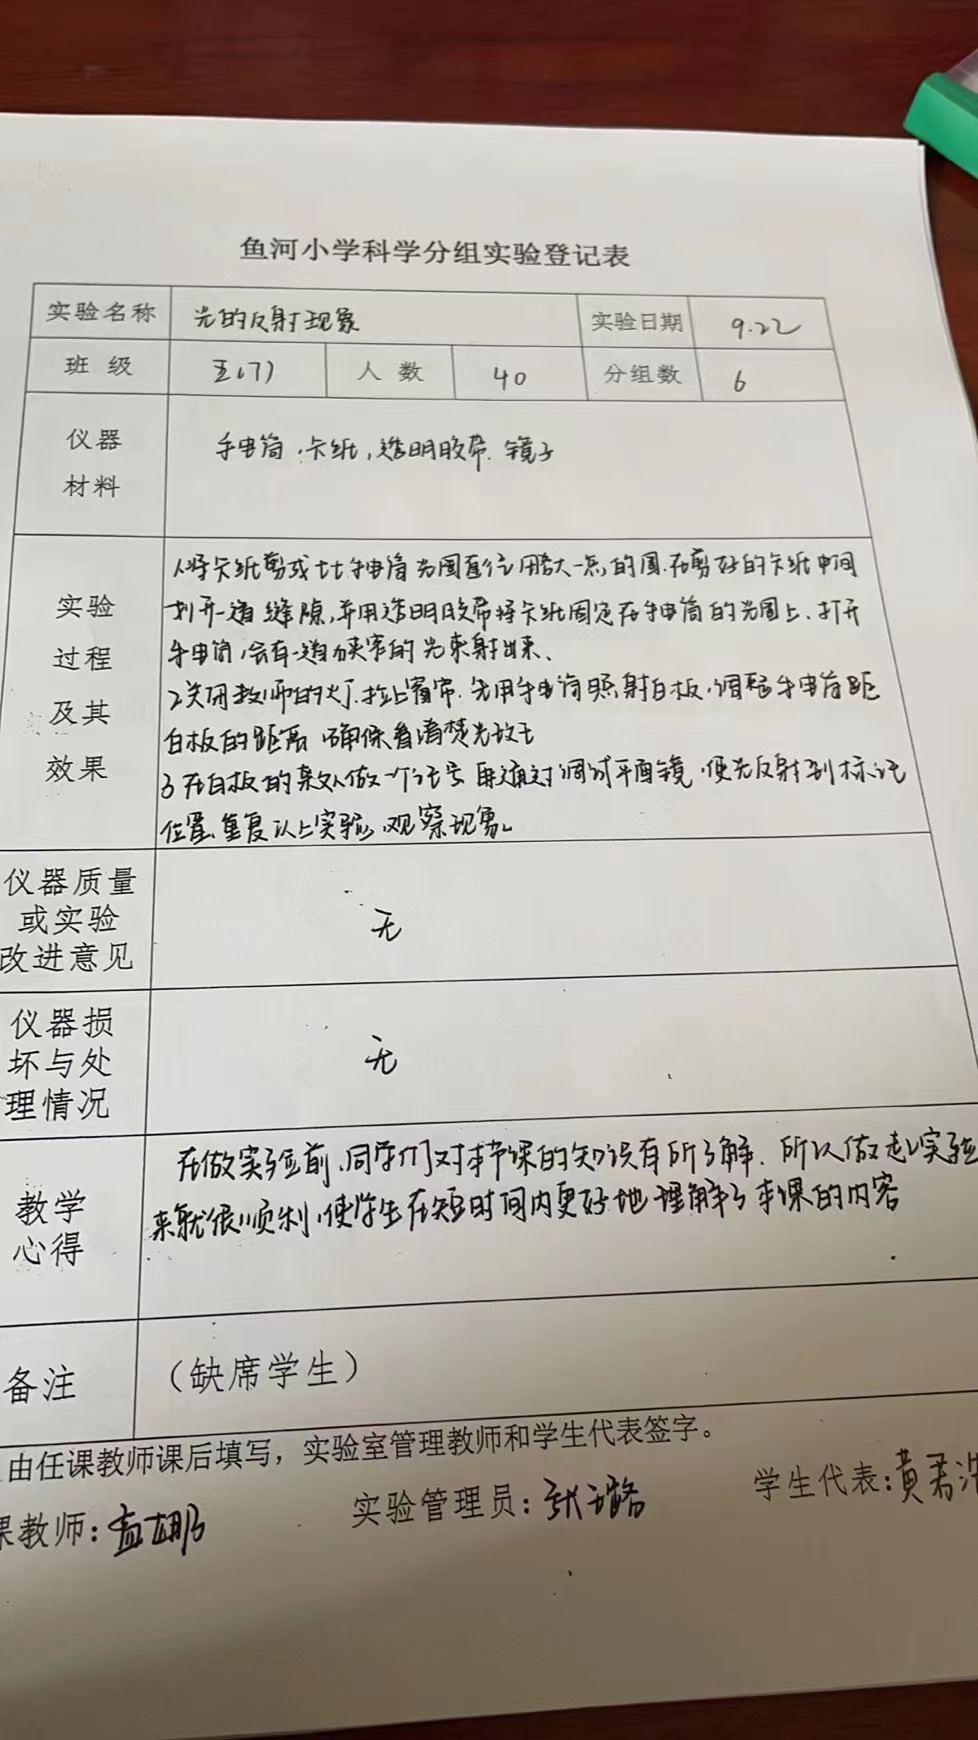 鱼河小学科学分组实验登记表
实验名称 光的反射现象 实验日期 9.22
班 级 五(7) 人 数 40 分组数 6
仪器
材料
手电筒、卡纸,透明胶带、镜子
实验
过程
及其
效果
1、将卡纸剪成比手电筒光圈直径大一点的圆.在剪好的卡纸中间
划开一道缝隙,并用透明胶带将卡纸固定在手电筒的光圈上.打开
手电筒,会有一道狭窄的光束射出来、
2关闭教师的灯.拉上窗帘.先用手电筒照射白板,调整手电筒距
白板的距离 确保看清楚光
3在白板的 做一个记号 再通过调试平面镜,使光反射到标记
位置、重复以上实验,观察现象。
仪器质量
或实验
改进意见
无
仪器损
坏与处
理情况
无
教学
心得
在做实验前,同学们对本节课的知识有所了解.所以做起实验
来就很顺利,使学生在短时间内更好地理解了本课的内容
备注
(缺席学生)
由任课教师课后填写,实验室管理教师和学生代表签字。
课教师:孟娜 实验管理员:张璐 学生代表:黄君浩